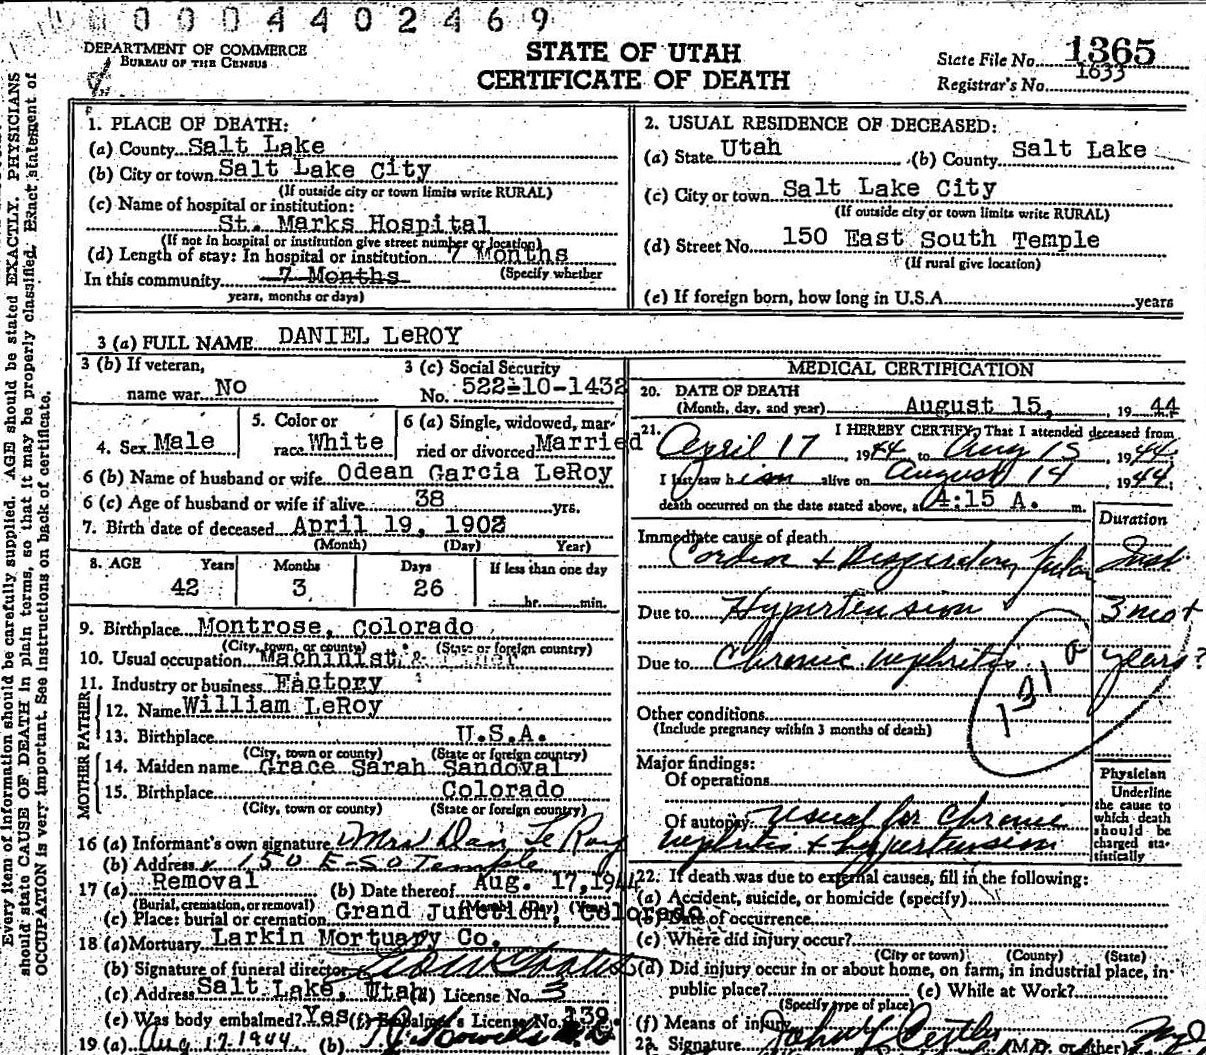 0 0 0 4 4 0 2 4 6 9
DEPARTMENT OF COMMERCE
BUREAU OF THE CENSUS
STATE OF UTAH
CERTIFICATE OF DEATH
State File No. 1365
Registrar's No. 1633
Every item of information should be carefully supplied. AGE should be stated EXACTLY. PHYSICIANS
should state CAUSE OF DEATH in plain terms, so that it may be properly classified. Exact statement of
OCCUPATION is very important. See instructions on back of certificate.
1. PLACE OF DEATH:
(a) County Salt Lake
(b) City or town Salt Lake City
(If outside city or town limits write RURAL)
(c) Name of hospital or institution:
St. Marks Hospital
(If not in hospital or institution give street number or location)
(d) Length of stay: In hospital or institution 7 Months
(Specify whether
In this community 7 Months
years, months or days)
2. USUAL RESIDENCE OF DECEASED:
(a) State Utah (b) County Salt Lake
(c) City or town Salt Lake City
(If outside city or town limits write RURAL)
(d) Street No. 150 East South Temple
(If rural give location)
(e) If foreign born, how long in U.S.A. years
3 (a) FULL NAME DANIEL LeROY
3 (b) If veteran,
name war No
3 (c) Social Security
No. 522-10-1432
4. Sex Male
5. Color or
race White
6 (a) Single, widowed, mar-
ried or divorced Married
6 (b) Name of husband or wife Odean Garcia LeRoy
6 (c) Age of husband or wife if alive 38 yrs.
7. Birth date of deceased April 19, 1902
(Month) (Day) Year)
8. AGE Years Months Days If less than one day
42 3 26 hr. min.
9. Birthplace Montrose, Colorado
(City, town, or county) (State or foreign country)
10. Usual occupation Machinist &
11. Industry or business Factory
FATHER
12. Name William LeRoy
13. Birthplace U.S.A.
(City, town or county) (State or foreign country)
MOTHER
14. Maiden name Grace Sarah Sandoval
15. Birthplace Colorado
(City, town or county) (State or foreign country)
16 (a) Informant's own signature Mrs Dan Le Roy
(b) Address 150 E-So Temple
17 (a) Removal (b) Date thereof Aug. 17, 1944
(Burial, cremation, or removal) (Month) (Day) (Year)
(c) Place: burial or cremation Grand Junction, Colorado
18 (a) Mortuary Larkin Mortuary Co.
(b) Signature of funeral director
(c) Address Salt Lake, Utah (d) License No. 3
(e) Was body embalmed? Yes (f) Embalmer's License No. 139.
19 (a) Aug 17 1944 (b)
MEDICAL CERTIFICATION
20. DATE OF DEATH
(Month, day, and year) August 15, , 19 44
21. I HEREBY CERTIFY, That I attended deceased from
April 17, 1944 to Aug 15, 1944
I last saw him alive on August 14, 1944.
death occurred on the date stated above, at 4:15 A. m.
Duration
Immediate cause of death
& Respiratory
Due to Hypertension 3 mo +
Due to Chronic nephritis years?
131
Other conditions
(Include pregnancy within 3 months of death)
Major findings:
Of operations
Of autopsy usual for chronic
nephritis + hypertension
Physician
Underline
the cause to
which death
should be
charged sta-
tistically
22. If death was due to external causes, fill in the following:
(a) Accident, suicide, or homicide (specify)
(b) Date of occurrence
(c) Where did injury occur?
(City or town) (County) (State)
(d) Did injury occur in or about home, on farm, in industrial place, in
public place? (e) While at Work?
(Specify type of place)
(f) Means of injury
23. Signature John (M.D. or other)